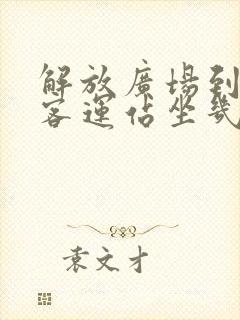 解放廣場到
客運佔坐幾
袁文才